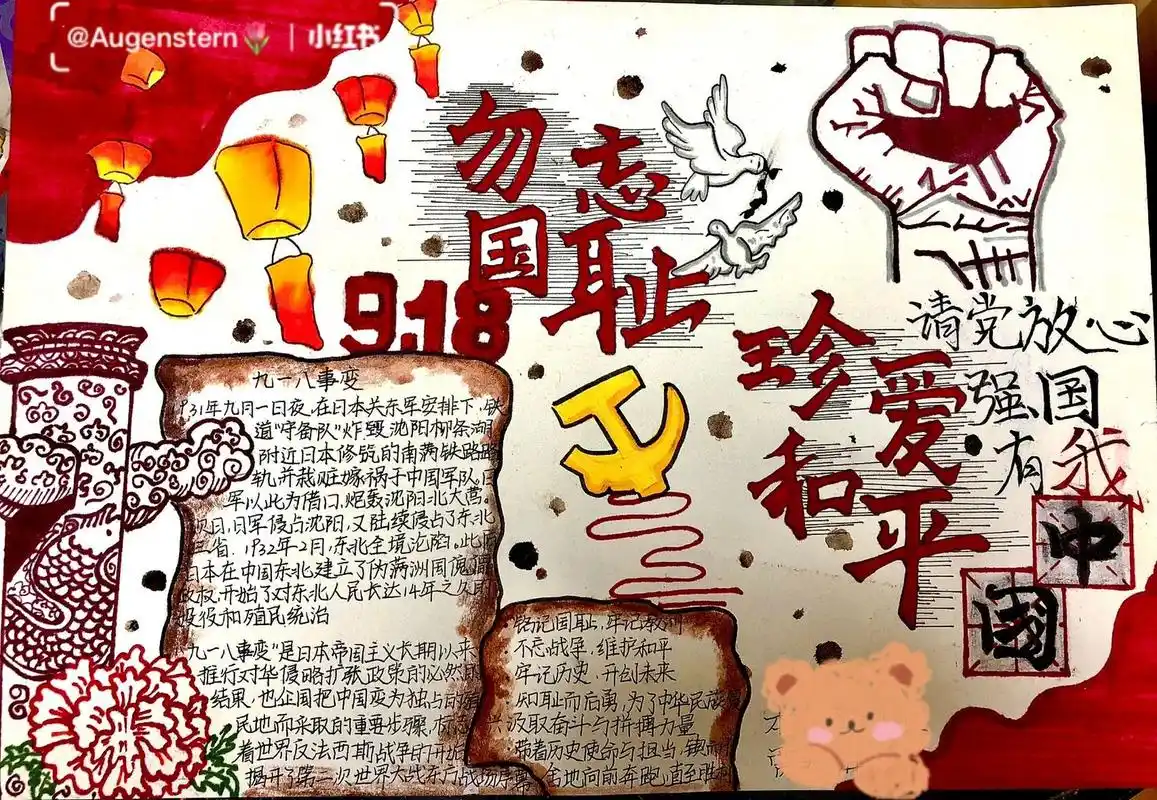 @Augenstern🌷 | 小红书
勿忘
国耻
9.18
珍爱
和平
请党放心
强国
有我
中
國
九一八事变
1931年九月一日夜,在日本关东军安排下,铁
道"守备队"炸毁沈阳柳条湖
附近日本修筑的南满铁路路
轨,并栽赃嫁祸于中国军队。日
军以此为借口,炮轰沈阳北大营。
次日,日军侵占沈阳,又陆续侵占了东北
三省。1932年2月,东北全境沦陷。此后
日本在中国东北建立了伪满洲国傀儡
政权,开始了对东北人民长达14年之久的
奴役和殖民统治
九一八事变"是日本帝国主义长期以来
推行对华侵略扩张政策的必然
结果,也企图把中国变为独占的
民地而采取的重要步骤,标志
着世界反法西斯战争的开始
揭开了第二次世界大战东方战场序幕
铭记国耻,牢记
不忘战争,维护和平
牢记历史,开创未来
知耻而后勇,为了中华民族复
兴汲取奋斗与拼搏力量
带着历史使命与担当,
全地向前奔跑,直至胜利